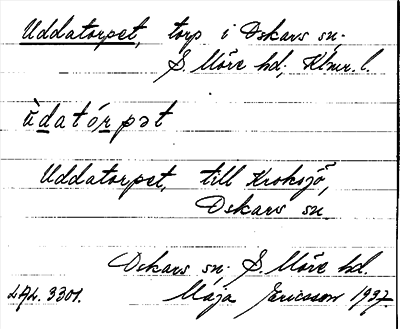 Uddatorpet, torp i Oskars sn;
S. Möre hd; Klmr. l.
ùdatórpət
Uddatorpet, till Kroksjö,
Oskars sn
Oskars sn. S. Möre hd.
3301. Maja Ericsson 1937.